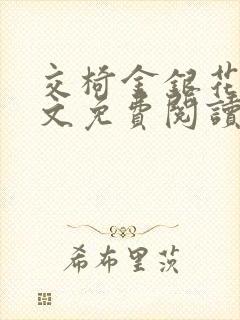 交椅金銀花
文免費閱讀
希布里茨